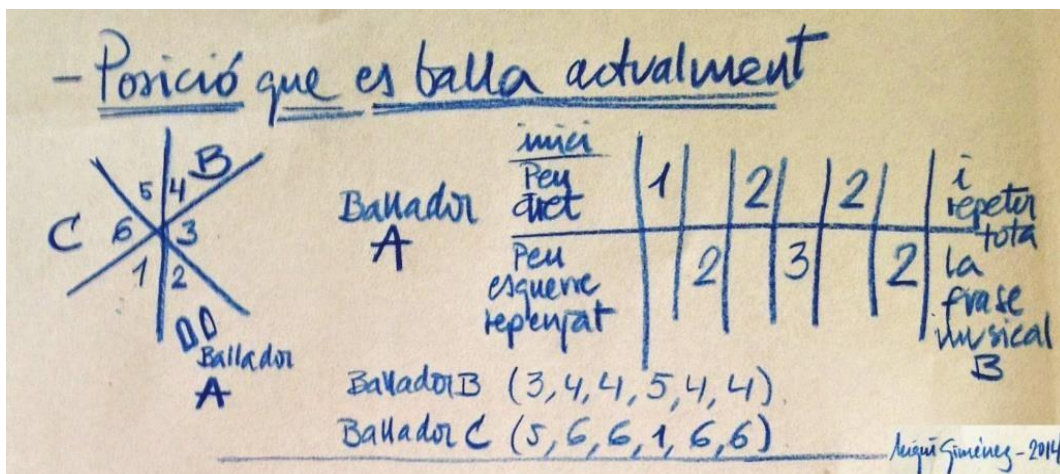 - Posició que es balla actualment
5 4 B
C 6 3
1 2
Ballador
A
Ballador
A
inici
Peu dret 1 2 2
Peu esquerre repenjat 2 3 2
i repetir tota la frase musical B
Ballador B (3, 4, 4, 5, 4, 4)
Ballador C (5, 6, 6, 1, 6, 6)
Giménez - 2014